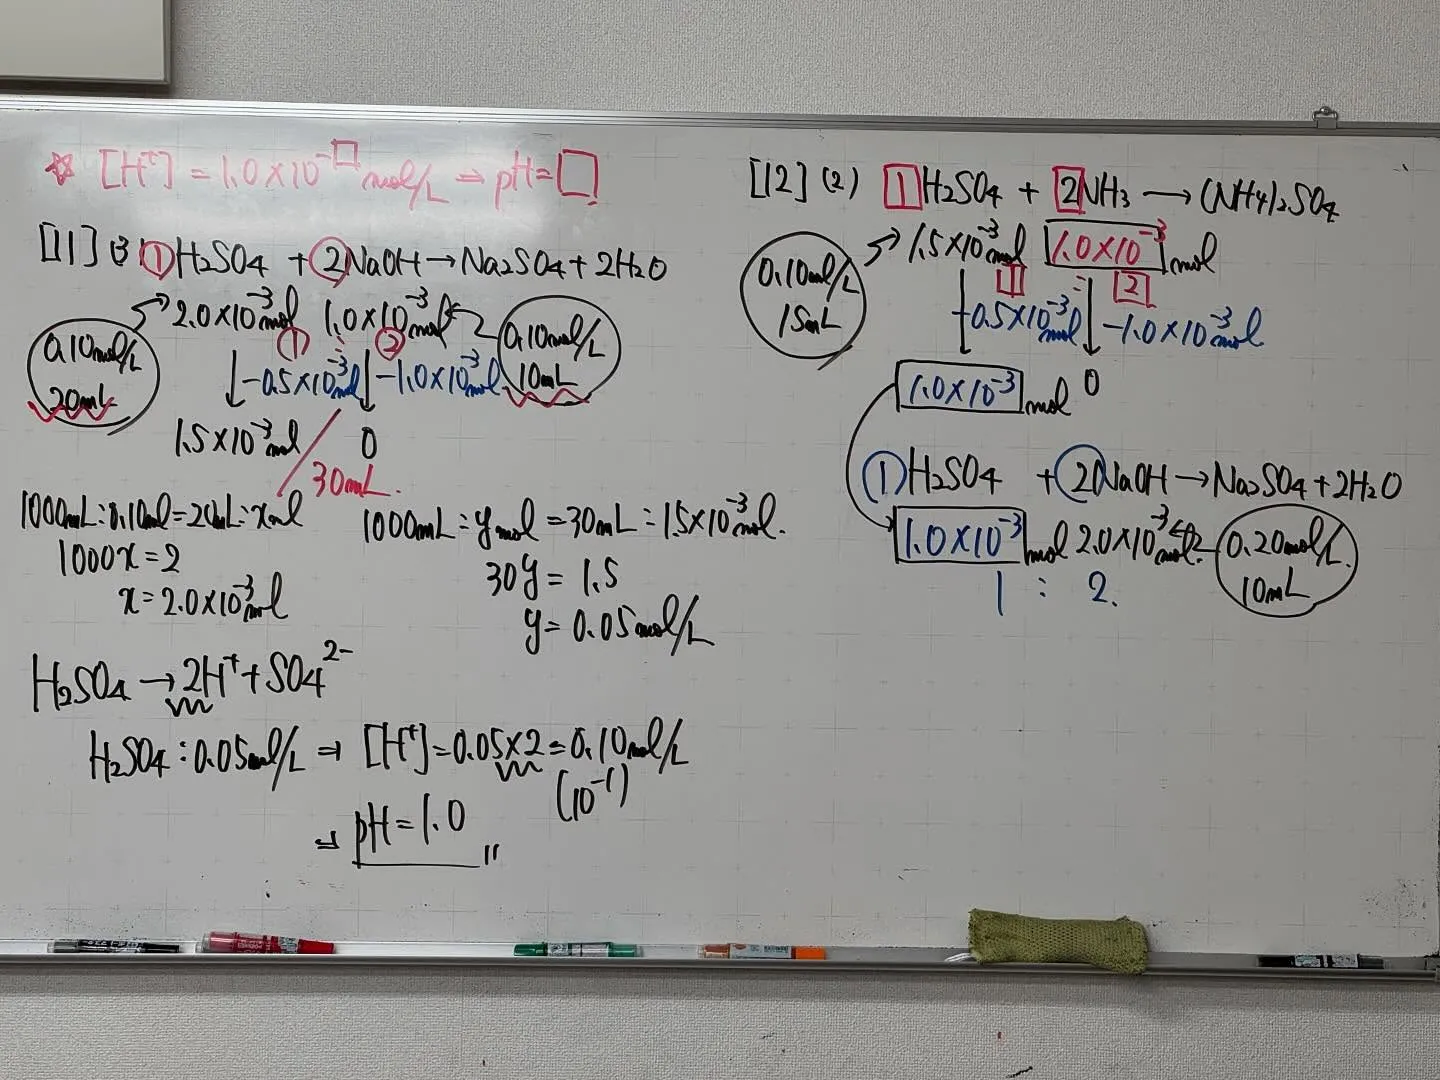 ☆ [H⁺] = 1.0×10⁻□ mol/L ⇒ pH=□
[11] (3) ①H₂SO₄ + ②NaOH → Na₂SO₄ + 2H₂O
2.0×10⁻³mol 1.0×10⁻³mol
0.10mol/L
20mL
0.10mol/L
10mL
① : ②
-0.5×10⁻³mol -1.0×10⁻³mol
1.5×10⁻³mol 0
30mL.
1000mL:0.10mol=20mL:xmol
1000x=2
x=2.0×10⁻³mol
1000mL:ymol=30mL:1.5×10⁻³mol.
30y=1.5
y=0.05mol/L
H₂SO₄ → 2H⁺+SO₄²⁻
H₂SO₄:0.05mol/L ⇒ [H⁺]=0.05×2=0.10mol/L
(10⁻¹)
⇒ pH=1.0
[12] (2) 1H₂SO₄ + 2NH₃ → (NH₄)₂SO₄
0.10mol/L
15mL
1.5×10⁻³mol 1.0×10⁻³mol
1 : 2
-0.5×10⁻³mol -1.0×10⁻³mol
1.0×10⁻³mol 0
①H₂SO₄ + ②NaOH → Na₂SO₄+2H₂O
1.0×10⁻³mol 2.0×10⁻³mol.
0.20mol/L.
10mL
1 : 2.